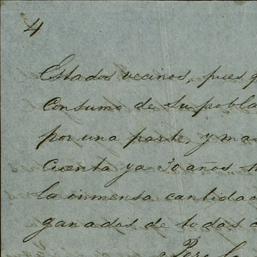 4
Estados vecinos, pues
Consumo de su pobla
por una parte, y ma
Cuenta ya 30 años
la inmensa cantidad
ganados de todas
Pero la